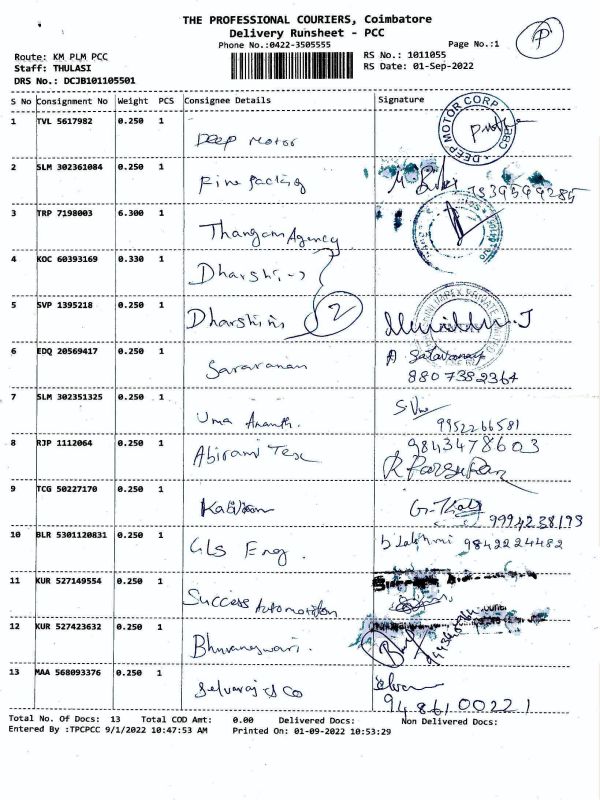 THE PROFESSIONAL COURIERS, Coimbatore
Delivery Runsheet - PCC
Phone No.:0422-3505555
Page No.:1
P
Route: KM PLM PCC
Staff: THULASI
DRS No.: DCJB101105501
RS No.: 1011055
RS Date: 01-Sep-2022
S No Consignment No Weight PCS Consignee Details Signature
1 TVL 5617982 0.250 1 Deep Motor
DEEP MOTOR CORP CBE
2 SLM 302361084 0.250 1 Fine Packing 7539599285
3 TRP 7198003 6.300 1 Thangam Agency
4 KOC 60393169 0.330 1 Dharshini
5 SVP 1395218 0.250 1 Dharshini 2
6 EDQ 20569417 0.250 1 Saravanan
8807382364
7 SLM 302351325 0.250 1 Uma Ananth.
9952266581
8 RJP 1112064 0.250 1 Abirami Tex 9843478603
9 TCG 50227170 0.250 1 9994238193
10 BLR 5301120831 0.250 1 GLS Eng. D Lakshmi 9842224482
11 KUR 527149554 0.250 1 Success Automation
12 KUR 527423632 0.250 1 Bhuvaneswari.
13 MAA 568093376 0.250 1 Selvaraj & Co
9486100221
Total No. Of Docs: 13 Total COD Amt: 0.00 Delivered Docs: Non Delivered Docs:
Entered By :TPCPCC 9/1/2022 10:47:53 AM Printed On: 01-09-2022 10:53:29